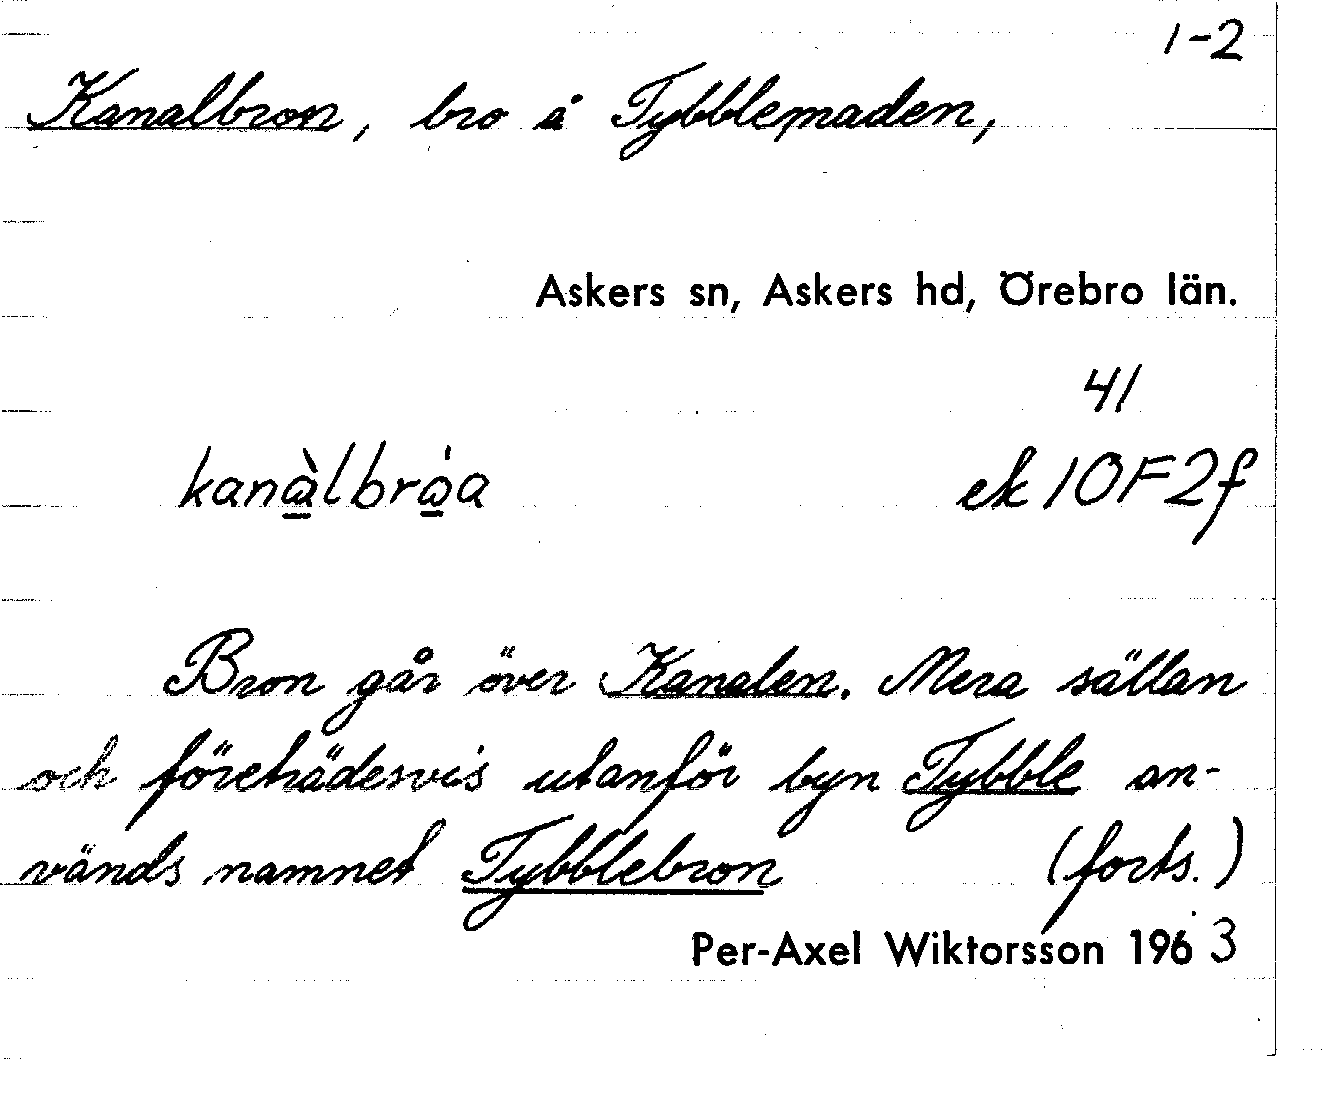 1-2
Kanalbron, bro å Tybblemaden,
Askers sn, Askers hd, Örebro län.
41
kanàlbròa ek 10F2f
Bron går över Kanalen. Mera sällan
och företrädesvis utanför byn Tybble an-
vänds namnet Tybblebron (forts.)
Per-Axel Wiktorsson 1963